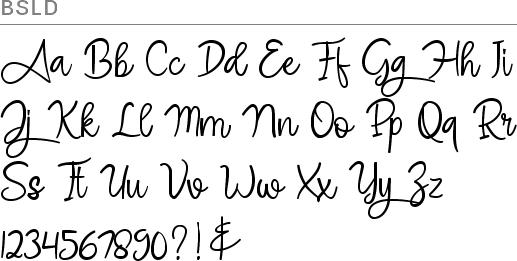 BSLD
Aa Bb Cc Dd Ee Ff Gg Hh Ii
Jj Kk Ll Mm Nn Oo Pp Qq Rr
Ss Tt Uu Vv Ww Xx Yy Zz
1234567890?!&